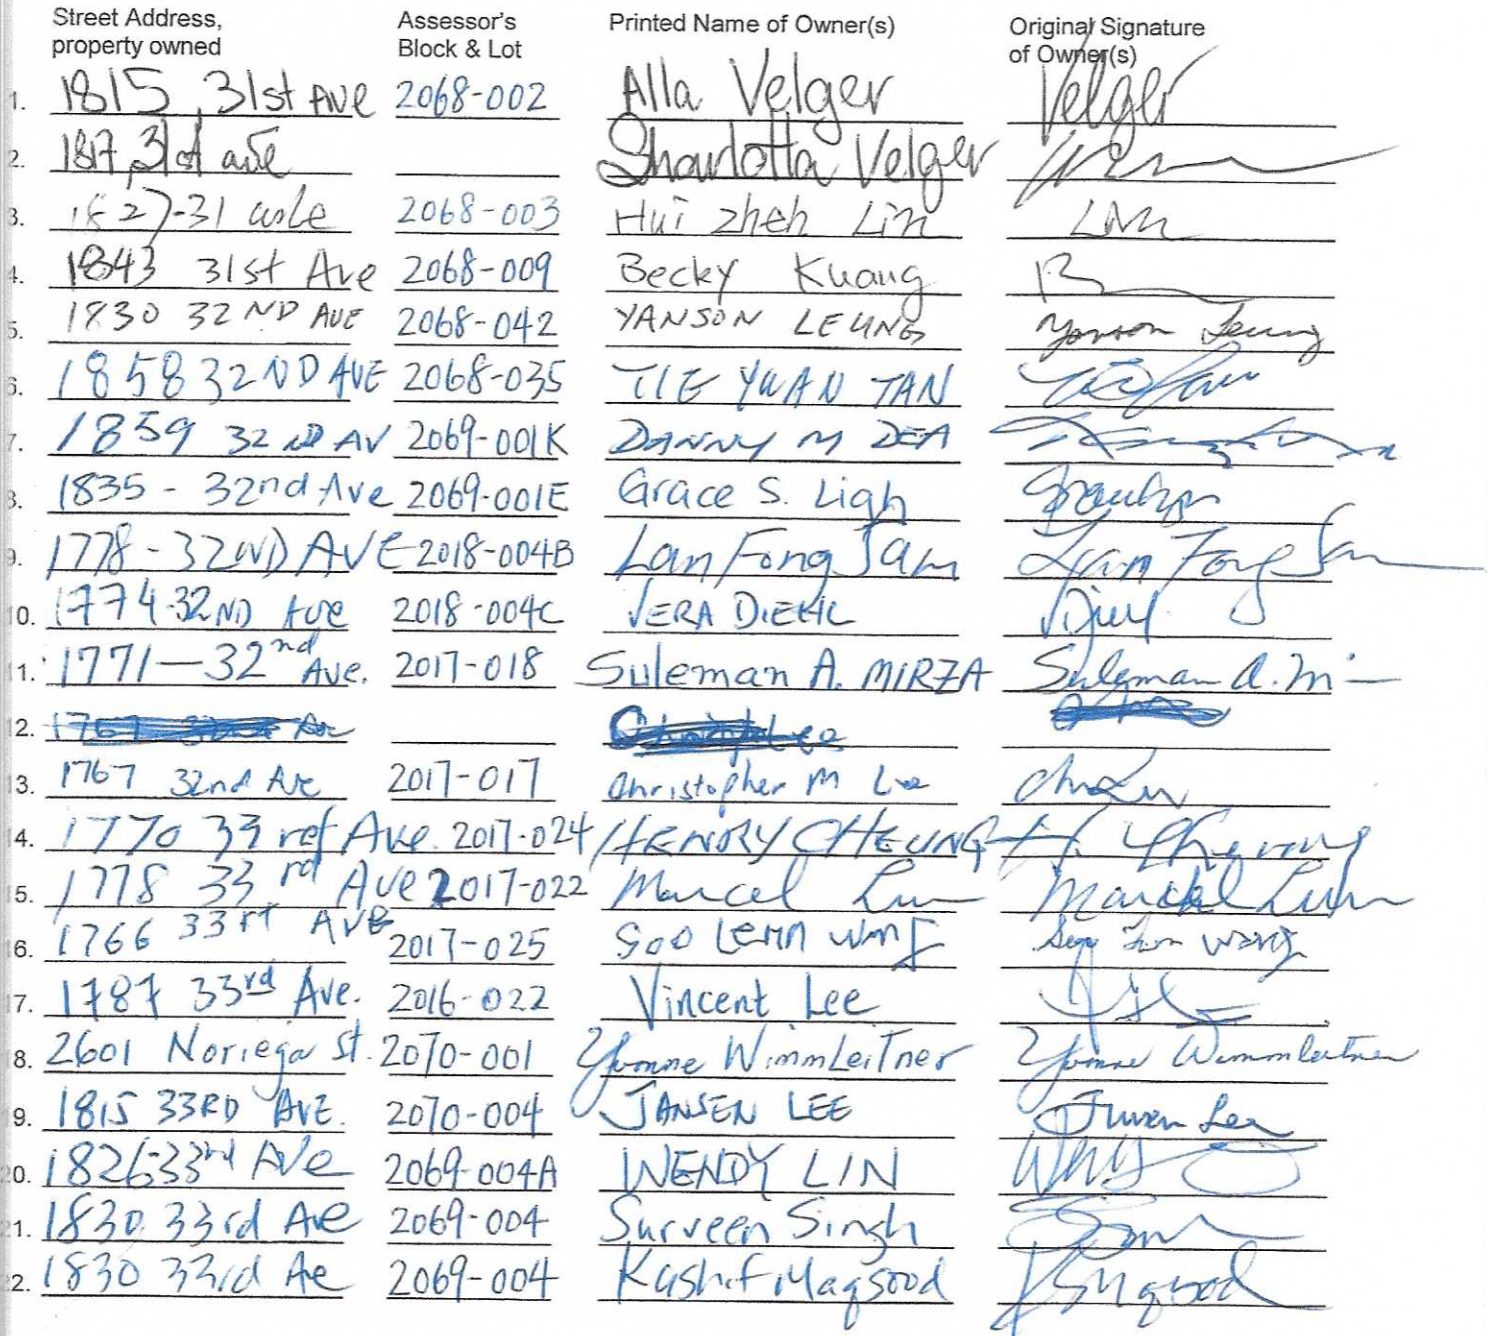 Street Address, property owned Assessor's Block & Lot Printed Name of Owner(s) Original Signature of Owner(s)
1. 1815 31st Ave 2068-002 Alla Velger Velger
2. 1817 31st ave Sharlotta Velger
3. 1827-31 2068-003 Hui zhen Lin Lin
4. 1843 31st Ave 2068-009 Becky Kuang B
5. 1830 32ND AVE 2068-042 YANSON LEUNG Yanson Leung
6. 1858 32ND AVE 2068-035 TIE YUAN TAN
7. 1859 32ND AV 2069-001K DANNY M DEA
8. 1835 - 32nd Ave 2069-001E Grace S. Ligh
9. 1778-32ND AVE 2018-004B Lan Fong Sam Lan Fong Sam
10. 1774-32ND Ave 2018-004C VERA DIEHL
11. 1771-32nd Ave. 2017-018 Suleman A. MIRZA Suleman A. Mi
12.
13. 1767 32nd Ave 2017-017 Christopher M Lee
14. 1770 33rd Ave. 2017-024 HENRY CHEUNG H. Cheung
15. 1778 33rd Ave 2017-022 Marcel Lum Marcel Lum
16. 1766 33rd AVE 2017-025 Wong
17. 1787 33rd Ave. 2016-022 Vincent Lee
18. 2601 Noriega St. 2070-001 Yvonne WimmLeiTner Yvonne Wimmleitner
19. 1815 33RD AVE. 2070-004 JANSEN LEE Jansen Lee
20. 1826-33rd Ave 2069-004A WENDY LIN
21. 1830 33rd Ave 2069-004 Surveen Singh
22. 1830 33rd Ave 2069-004 Kashif Maqsood K Maqsood